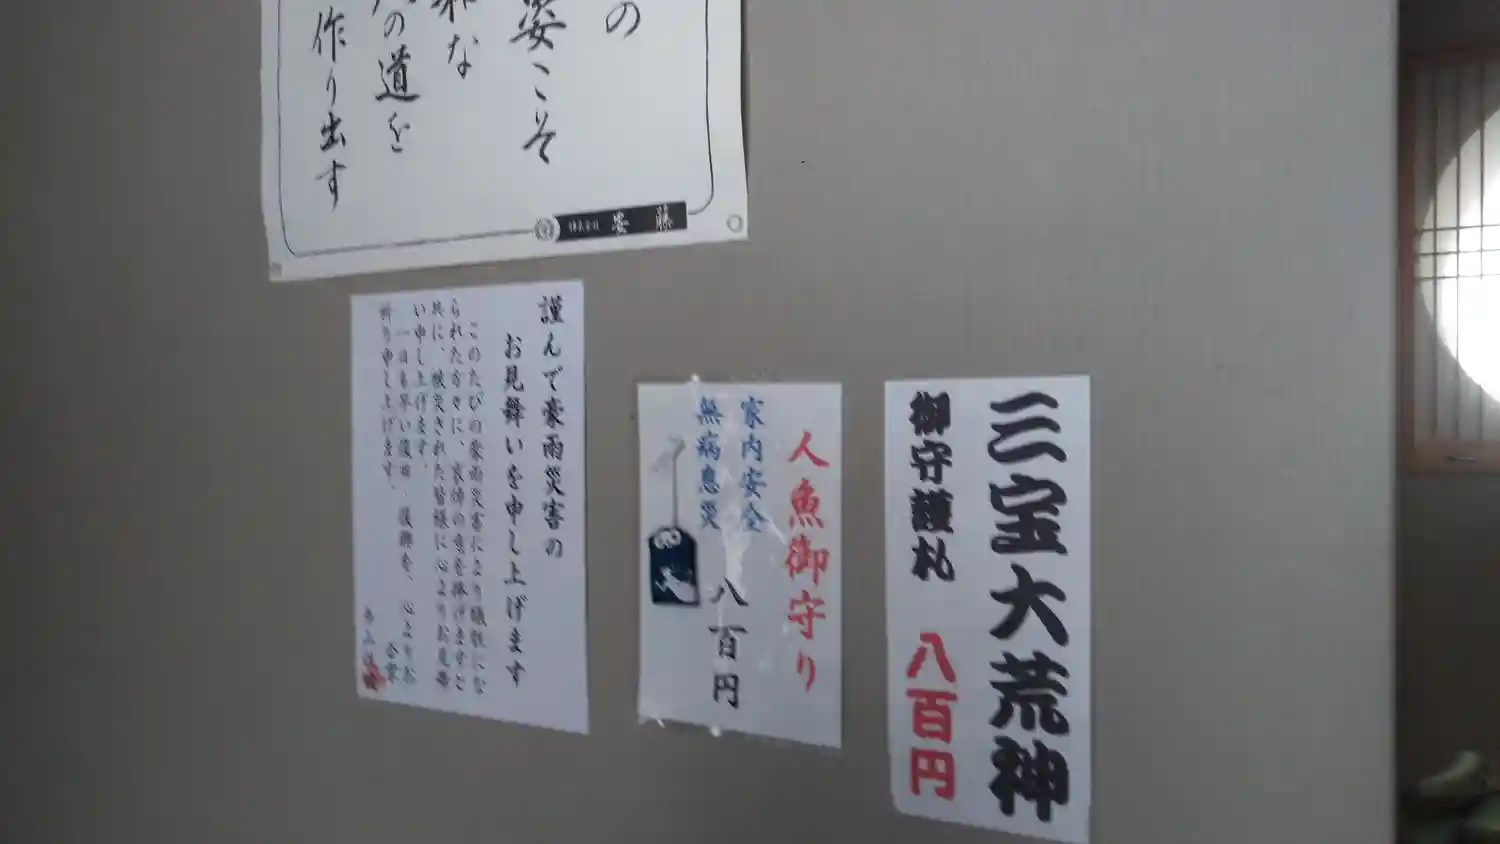 の
姿こそ
な
の道を
作り出す
株式会社 安藤
謹んで豪雨災害の
お見舞いを申し上げます
このたびの豪雨災害により犠牲にな
られた方々に、哀悼の意を捧げますと
共に、被災された皆様に心よりお見舞
い申し上げます。
一日も早い復旧、復興を、心よりお
祈り申し上げます。
合掌
人魚御守り
家内安全
無病息災
八百円
三宝大荒神
御守護札 八百円